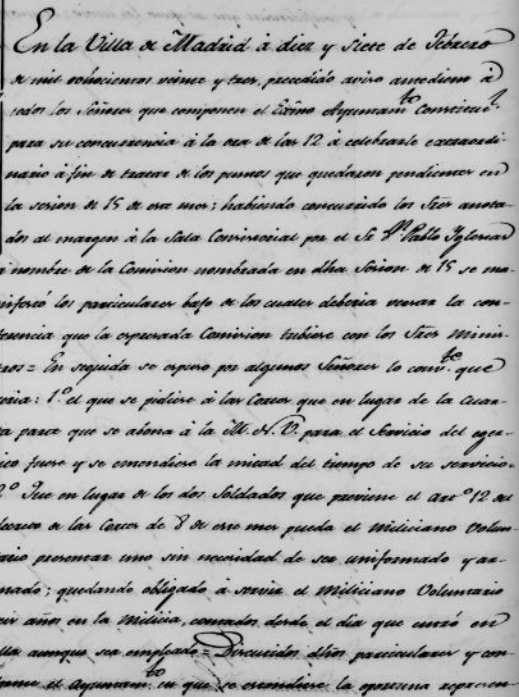 En la Villa de Madrid à diez y siete de Febrero
de mil ochocientos veinte y tres, precedido aviso antediem à
todos los Señores que componen el Exmo Ayuntam.to Constitu.l
para su concurrencia à la ora de las 12 à celebrarle extraordi-
nario à fin de tratar de los puntos que quedaron pendientes en
la sesion de 15 de este mes; habiendo concurrido los Sres anota-
dos al margen à la Sala Consistorial por el Sr D.n Pablo Yglesias
à nombre de la Comision nombrada en dha Sesion de 15 se ma-
nifestó los particulares bajo de los cuales deberia versar la con-
ferencia que la espresada Comision tubiese con los Sres Minis-
tros = En seguida se espuso por algunos Señores lo conv.te que
seria: 1.º el que se pidiese à las Cortes que en lugar de la Cuar-
ta parte que se abona à la M. N. V. para el Servicio del eger-
cito fuese y se entendiese la mitad del tiempo de su servicio =
2.º Que en lugar de los dos Soldados que previene el artº 12 del
decreto de las Cortes de 8 de este mes pueda el Miliciano Volun-
tario presentar uno sin necesidad de ser uniformado y ar-
mado; quedando obligado à servir el Miliciano Voluntario
seis años en la Milicia, contados desde el dia que entró en
ella aunque sea empleado = Discutidos dhos particulares y con-
forme el Ayuntam.to en que se estendiese la oportuna represen-